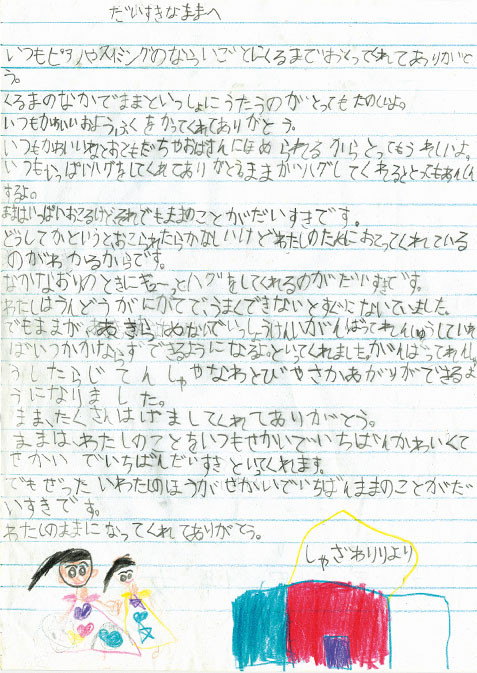 だいすきなままへ
いつもピアノやスイミングのならいごとにくるまでおくってくれてありがと
う。
くるまのなかでままといっしょにうたうのがとってもたのしいよ。
いつもかわいいおようふくをかってくれてありがとう。
いつもかわいいねとおともだちやおばさんにほめられてるからとってもうれしいよ。
いつもいっぱいハグをしてくれてありがとうままがハグしてくれるととってもあんしん
するよ。
ままはいっぱいおこるけどそれでもままのことがだいすきです。
どうしてかというとおこられたらかなしいけどわたしのためにおこってくれている
のがわかるからです。
なかなおりのときにぎゅ〜っとハグをしてくれるのがだいすきです。
わたしはうんどうがにがてで、うまくできないとすぐにないていました。
でもままが、あきらめないでいっしょうけんめいがんばってれんしゅうしていれ
ばいつかかならずできるようになるよ。といってくれました。がんばってれんし
うしたらじてんしゃやなわとびやさかあがりができるよ
うになりました。
まま、たくさんはげましてくれてありがとう。
ままは、わたしのことをいつもせかいでいちばんかわいくて
せかいでいちばんだいすきといってくれます。
でもぜったいわたしのほうがせかいでいちばんままのことがだ
いすきです。
わたしのままになってくれてありがとう。
しゃざわりりより